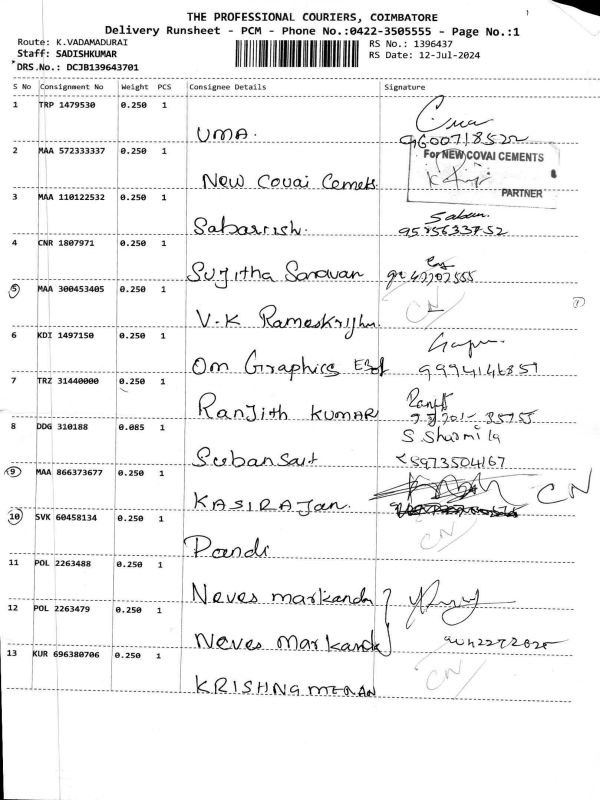 THE PROFESSIONAL COURIERS, COIMBATORE
Delivery Runsheet - PCM - Phone No.:0422-3505555 - Page No.:1
Route: K.VADAMADURAI
RS No.: 1396437
Staff: SADISHKUMAR
RS Date: 12-Jul-2024
DRS.No.: DCJB139643701
S No Consignment No Weight PCS Consignee Details Signature
1 TRP 1479530 0.250 1
UMA. 9600718522
2 MAA 572333337 0.250 1
For NEW COVAI CEMENTS
New Covai Cemets
PARTNER
3 MAA 110122532 0.250 1
Sabarrish.
4 CNR 1807971 0.250 1
Sujitha Saravan
5 MAA 300453405 0.250 1
CN
V.K
6 KDI 1497150 0.250 1
Om Graphics
7 TRZ 31440000 0.250 1
Ranjith KUMAR
8 DDG 310188 0.085 1
S Sharmila
9 MAA 866373677 0.250 1
CN
KASIRAJan.
10 SVK 60458134 0.250 1
CN
Pandi
11 POL 2263488 0.250 1
Neves markanda
12 POL 2263479 0.250 1
Neves Markand
13 KUR 696380706 0.250 1
CN
KRISHNA MENAN